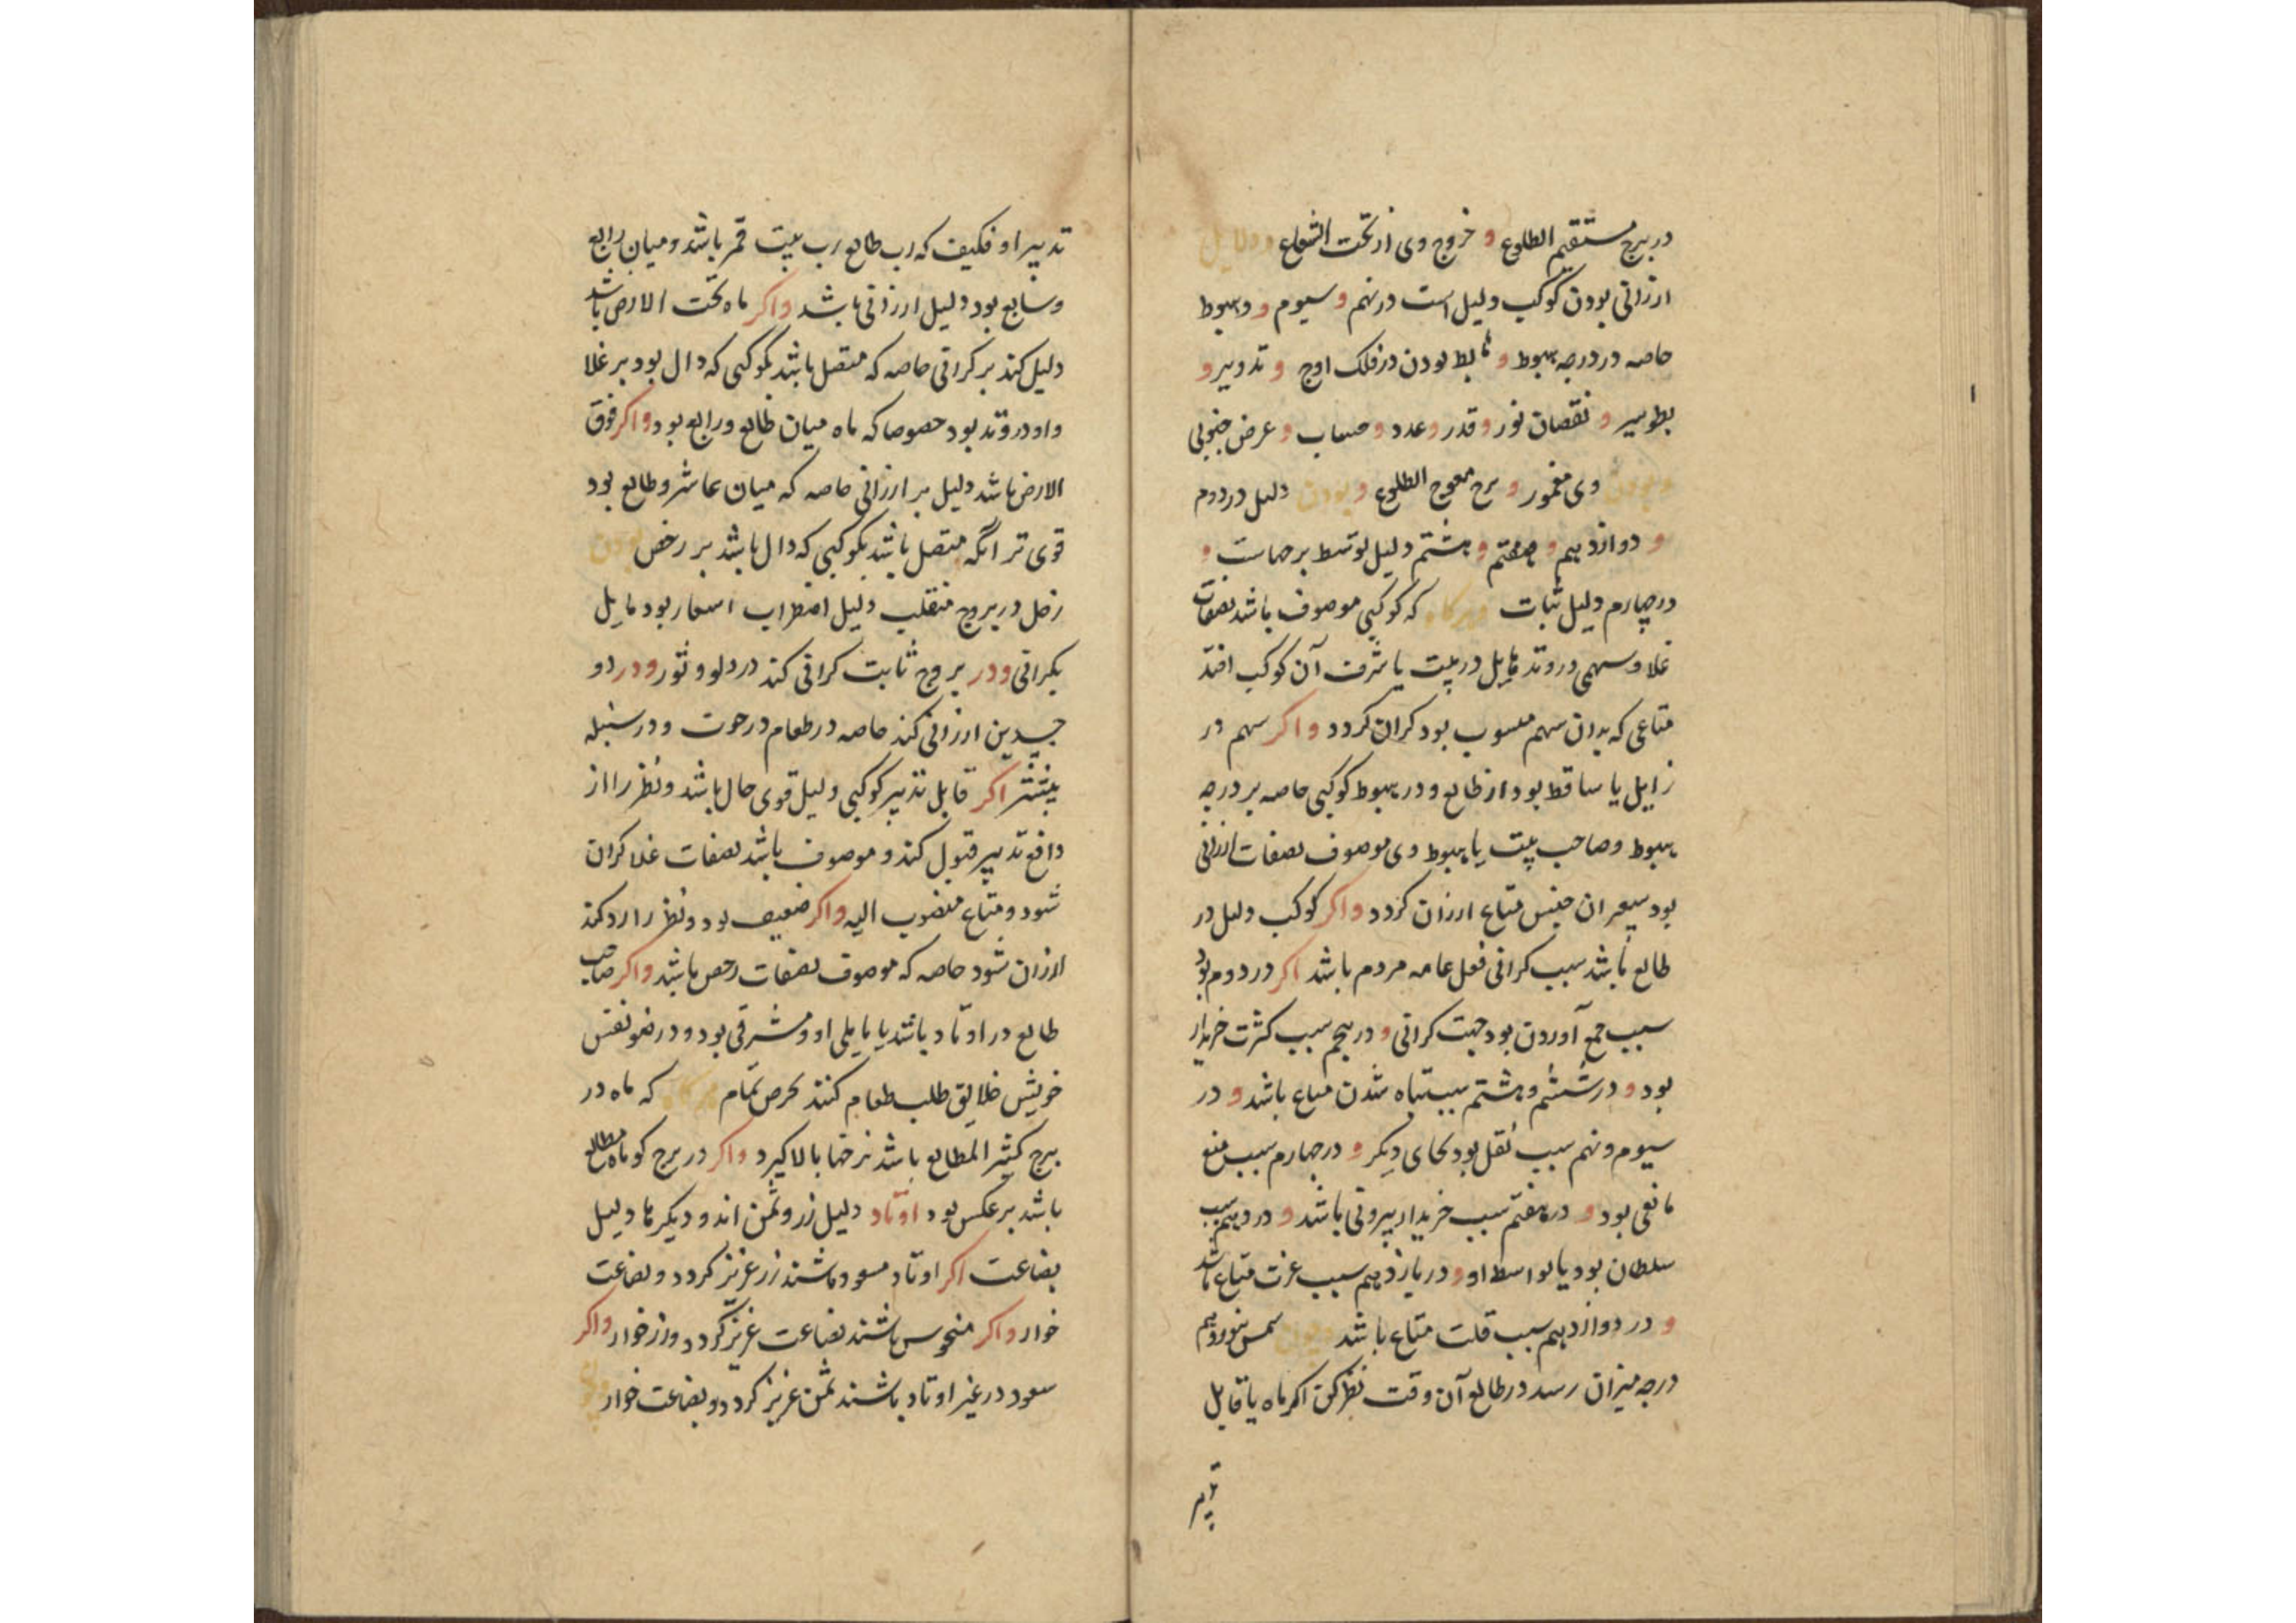 در برج مستقیم الطلوع و خروج وی از تحت الشعاع و دلایل
ارزانی بودن کوکب دلیل است در نهم و سیوم و و هبوط
خاصه در درجه هبوط و هابط بودن در فلک اوج و تدویر و
بطو سیر و نقصان نور و قدر و عدد و حساب و عرض جنوبی
و بودن وی مغمور و برج معوج الطلوع و بودن دلیل در دوم
و دوازدهم و هفتم و هشتم دلیل توسط برحاست و
در چهارم دلیل ثبات و هرکاه که کوکبی موصوف باشد بصفات
غلا و سهمی در وتد مایل در بیت یا شرف آن کوکب افتد
متاعی که بدان سهم منسوب بود کران کردد و اکر سهم در
زایل یا ساقط بود از طالع و در هبوط کوکبی خاصه بر درجه
هبوط و صاحب بیت یا هبوط وی موصوف بصفات ارزانی
بود سعر ان جنس متاع ارزان کردد و اکر کوکب دلیل در
طالع باشد سبب کرانی فعل عامه مردم باشد اکر در دوم بود
سبب جمع آوردن بود جهت کرانی و در پنجم سبب کثرت خریدار
بود و در ششم و هشتم سبب تباه شدن متاع باشد و در
سیوم و نهم سبب نقل بود بجای دیکر و در چهارم سبب منع
مانعی بود و در هفتم سبب خریدار بیرونی باشد و در دهم سبب
سلطان بود یا بواسط او و در یازدهم سبب عزت متاع باشد
و در دوازدهم سبب قلت متاع باشد و چون شمس بنوزدهم
درجه میزان رسد در طالع آن وقت نظر کن اکر ماه یا قابل
تدبیر او فکیف که رب طالع رب بیت قمر باشد و میان رابع
و سابع بود دلیل ارزانی باشد و اکر ماه تحت الارض باشد
دلیل کند بر کرانی خاصه که متصل باشد بکوکبی که دال بود بر غلا
و او در وتد بود خصوصا که ماه میان طالع و رابع بود و اکر فوق
الارض باشد دلیل بر ارزانی خاصه که میان عاشر و طالع بود
قوی تر انکه متصل باشد بکوکبی که دال باشد بر رخص بودن
زحل در بروج منقلب دلیل اضطراب اسعار بود مایل
بکرانی و در بروج ثابت کرانی کند در دلو و ثور و در دو
جسدین ارزانی کند خاصه در طعام در حوت و در سنبله
بیشتر اکر قابل تدبیر کوکبی دلیل قوی حال باشد و نظر را از
دافع تدبیر قبول کند و موصوف باشد بصفات غلا کران
شود و متاع منصوب الیه و اکر ضعیف بود و نظر را رد کند
ارزان شود خاصه که موصوف بصفات رخص باشد و اکر صاحب
طالع در اوتاد باشد یا مایلی او و مشرقی بود و در ضو نفس
خویش خلایق طلب طعام کنند بحرص تمام هرکاه که ماه در
برج کثیر المطالع باشد نرخها بالا کیرد و اکر در برج کوتاه مطالع
باشد بر عکس بود اوتاد دلیل زر و ثمن اند و دیکرها دلیل
بضاعت اکر اوتاد مسعود باشند زر عزیز کردد و بضاعت
خوار و اکر منحوس باشند بضاعت عزیز کردد و زر خوار و اکر
سعود در غیر اوتاد باشند ثمن عزیز کردد و بضاعت خوار